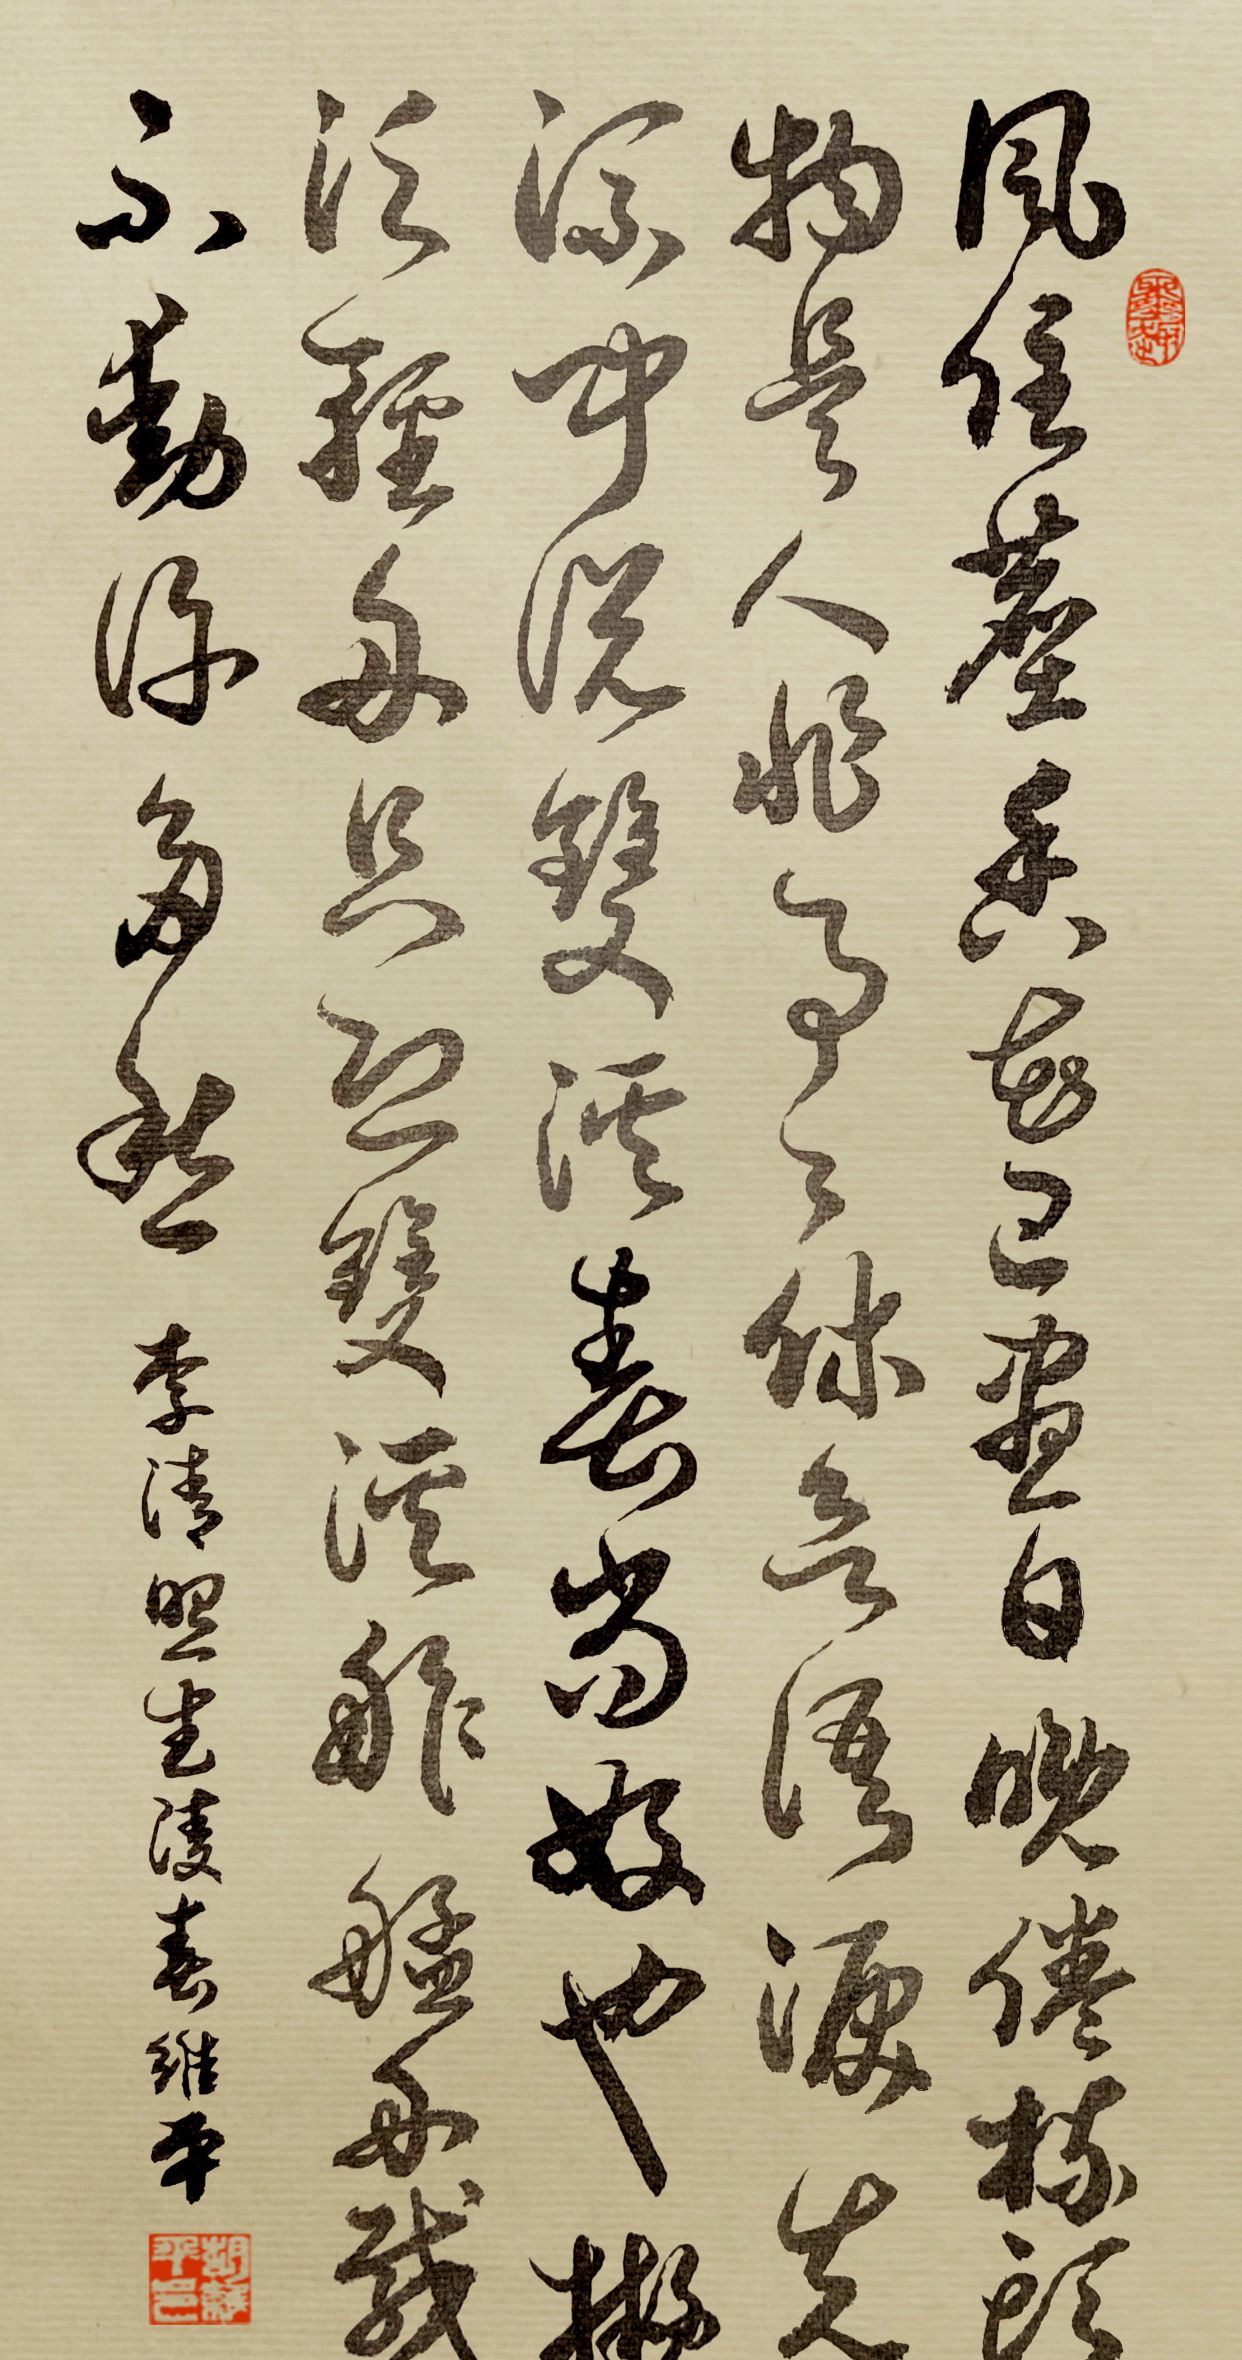 風住塵香花已盡日晚倦梳頭
物是人非事々休欲語淚先
流聞說雙溪春尚好也擬
泛輕舟只恐雙溪舴艋舟載
不動許多愁 李清照武陵春維平
胡維平印